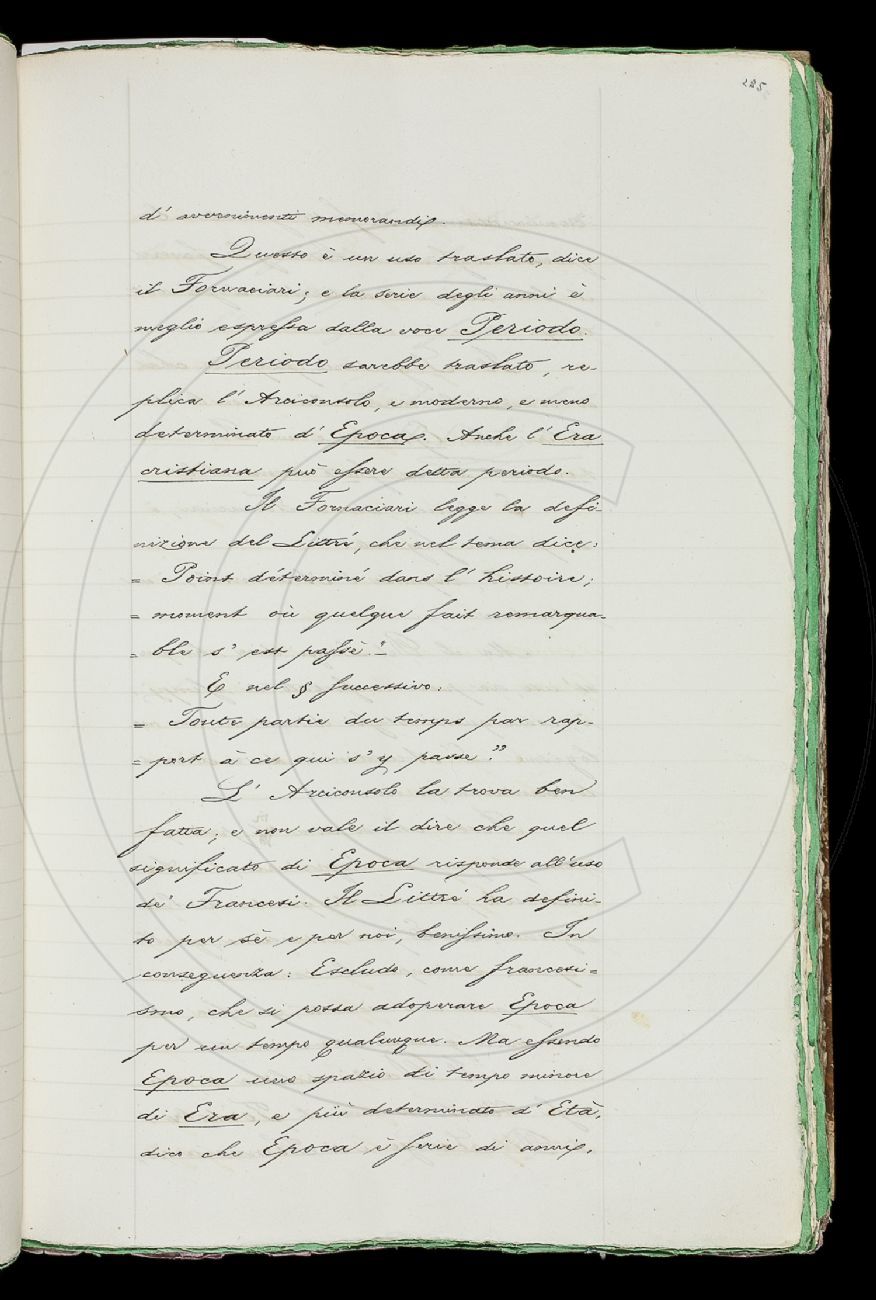 225
d' avvenimenti memorandi».
Questo è un uso traslato, dice
il Fornaciari; e la serie degli anni è
meglio espressa dalla voce Periodo.
Periodo sarebbe traslato, re-
plica l' Arciconsolo, e moderno, e meno
determinato d' Epoca». Anche l' Era
cristiana può essere detta periodo.
Il Fornaciari legge la defi-
nizione del Littré, che nel tema dice:
= Point déterminé dans l' histoire;
= moment où quelque fait remarqua-
= ble s' est passé."
E nel § successivo:
= Toute partie du temps par rap-
= port à ce qui s' y passe."
L' Arciconsolo la trova ben
fatta; e non vale il dire che quel
significato di Epoca risponde all'uso
de' Francesi. Il Littré ha defini-
to per sè e per noi, benissimo. In
conseguenza: Escludo, come francesi=
smo, che si possa adoperare Epoca
per un tempo qualunque. Ma essendo
Epoca uno spazio di tempo minore
di Era, e più determinato d' Età,
dico che Epoca è serie di anni»,